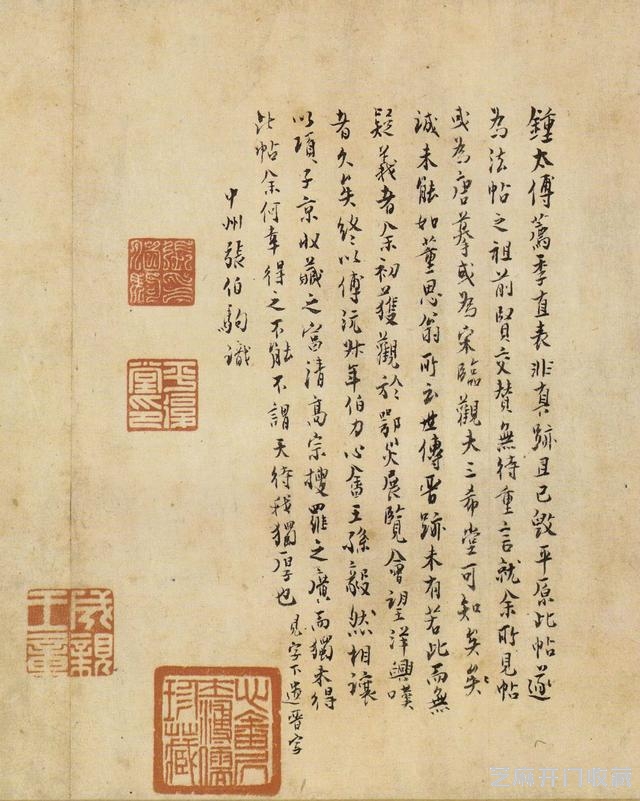 鍾太傅薦季直表非真跡且已毀平原此帖遂
為法帖之祖前賢交贊無待重言就余所見帖
或為唐摹或為宋臨觀夫三希堂可知矣矣
誠未能如董思翁所云世傳晉跡未有若此而無
疑義者余初獲觀於鄂災展覽會望洋興嘆
者久矣終以傅沅叔年伯力心畬王孫毅然相讓
以項子京收藏之富清高宗搜羅之廣而獨未得
此帖余何幸得之不能不謂天待我獨厚也 見字下遺晉字
中州張伯駒識
平復堂印
成親王章
溥儒珍藏
芝麻开门收藏